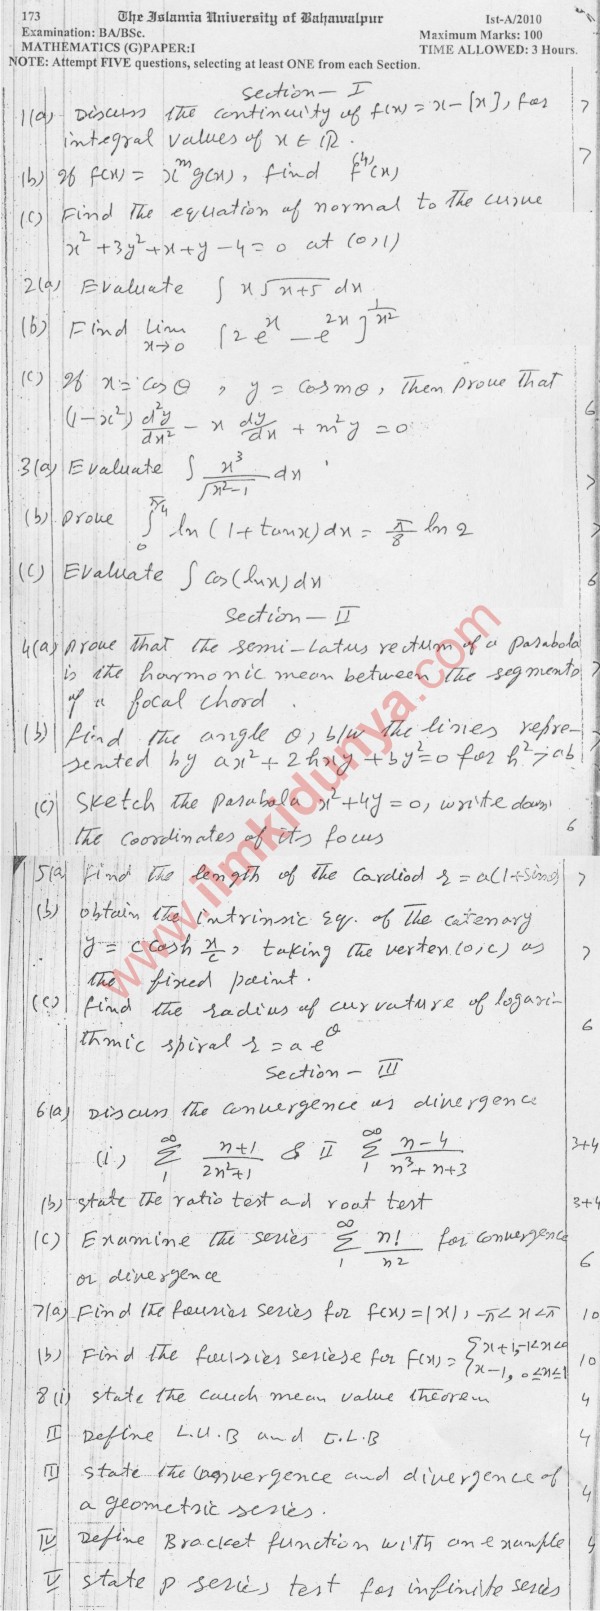 173 The Islamia University of Bahawalpur Ist-A/2010
Examination: BA/BSc. Maximum Marks: 100
MATHEMATICS (G)PAPER:I TIME ALLOWED: 3 Hours.
NOTE: Attempt FIVE questions, selecting at least ONE from each Section.
Section - I
1(a) Discuss the continuity of f(x) = x - [x], for 7
integral values of x ∈ IR.
(b) If f(x) = x^m g(x), find f^(4)(x) 7
(c) Find the equation of normal to the curve
x² + 3y² + x + y - 4 = 0 at (0,1)
2(a) Evaluate ∫ x √(x+5) dx
(b) Find lim x→0 [2e^x - e^2x]^(1/x²)
(c) If x = cosθ, y = cosmθ, then prove that
(1-x²) d²y/dx² - x dy/dx + m²y = 0 6
3(a) Evaluate ∫ x³/√(x²-1) dx 7
(b) Prove ∫₀^(π/4) ln(1+tanx)dx = π/8 ln2 7
(c) Evaluate ∫ cos(lnx)dx 6
Section - II
4(a) Prove that the semi-Latus rectum of a parabola
is the harmonic mean between the segments 7
of a focal chord.
(b) Find the angle θ, b/w the lines repre- 7
sented by ax² + 2hxy + by² = 0 for h² > ab
(c) Sketch the parabola x² + 4y = 0, write down
the coordinates of its focus 6
5(a) Find the length of the cardiod r = a(1+sinθ) 7
(b) obtain the intrinsic Eq. of the catenary
y = c cosh x/c, taking the vertex (0,c) as 7
the fixed point.
(c) Find the radius of curvature of logari-
thmic spiral r = a e^θ 6
Section - III
6(a) Discuss the convergence as divergence
(i) ∑₁^∞ (n+1)/(2n²+1) & II ∑₁^∞ (n-4)/(n³+n+3) 3+4
(b) state the ratio test and root test 3+4
(c) Examine the series ∑₁^∞ n!/n² for convergence
or divergence 6
7(a) Find the fourier series for f(x) = |x|, -π < x < π 10
(b) Find the fourier seriese for f(x) = { x+1, -1<x<0 10
{ x-1, 0≤x≤1
8(i) state the cauch mean value theorem 4
II Define L.U.B and G.L.B 4
III state the convergence and divergence of
a geometric series. 4
IV Define Bracket function with an example 4
V state P series test for infinite series
www.ilmkidunya.com